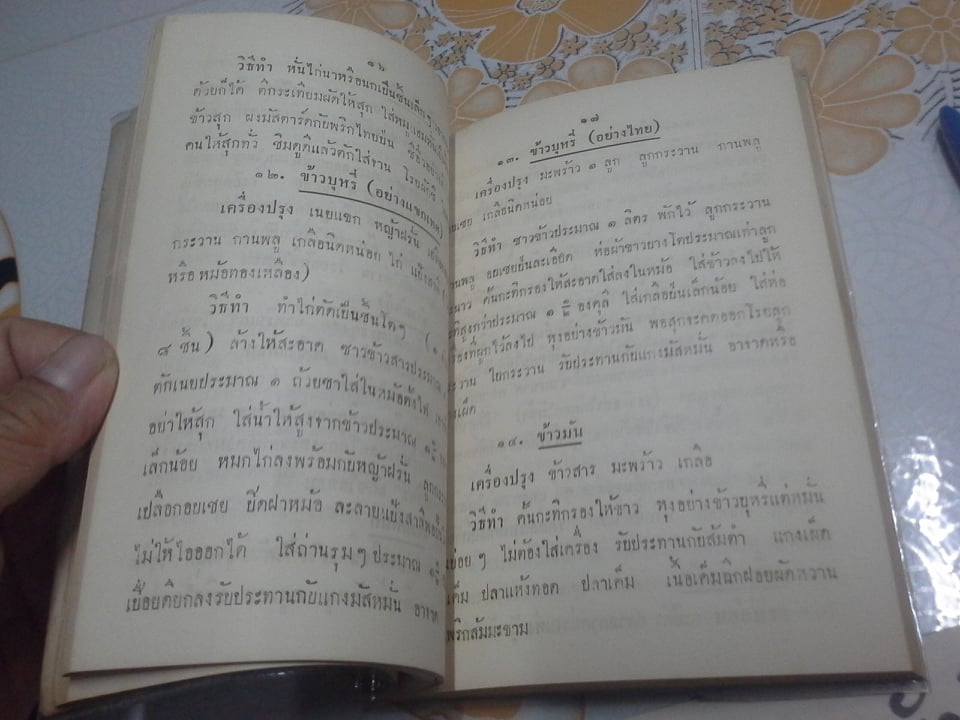 ๑๖
วิธีทำ หั่นไก่นาหรือนกเป็นชิ้นเล็กๆ
ด้วยก็ได้ ตักระเทียมผัดให้สุก ใส่หมู
ข้าวสุก ผงมัสตาร์ดกับพริกไทยป่น
คนให้สุกทั่ว ชิมดูดีแล้วตักใส่จาน โรยผักชี
๑๒. ข้าวบุหรี่ (อย่างแขกเทศ)
เครื่องปรุง เนยแขก หญ้าฝรั่น
กระวาน กานพลู เกลือนิดหน่อย ไก่ แป้งสาลี
หรือหม้อทองเหลือง)
วิธีทำ ทำไก่ตัดเป็นชิ้นโตๆ (๑
๘ ชิ้น) ล้างให้สะอาด ซาวข้าวสารประมาณ
ตักเนยประมาณ ๑ ถ้วยชาใส่ในหม้อตั้งไฟ
อย่าให้สุก ใส่น้ำให้สูงจากข้าวประมาณ ๑
เล็กน้อย หมกไก่ลงพร้อมกับหญ้าฝรั่น
เปลือกอบเชย ปิดฝาหม้อ ละลายแป้งสาลีพอ
ไม่ให้ไอออกได้ ใส่ถ่านรุมๆ ประมาณ ๑
เปื่อยดียกลงรับประทานกับแกงมัสหมั่น อาจาด
๑๘
๑๓. ข้าวบุหรี่ (อย่างไทย)
เครื่องปรุง มะพร้าว ๑ ลูก ลูกกระวาน กานพลู
อบเชย เกลือนิดหน่อย
วิธีทำ ซาวข้าวประมาณ ๑ ลิตร พักไว้ ลูกกระวาน
กานพลู อบเชยป่นละเอียด ห่อผ้าขาวบางโตประมาณเท่าลูก
มะนาว คั้นกะทิกรองให้สะอาดใส่ลงในหม้อ ใส่ข้าวลงไปให้
กะทิสูงกว่าประมาณ ๑ องคุลี ใส่เกลือป่นเล็กน้อย ใส่ห่อ
เครื่องที่ผูกไว้ลงไป หุงอย่างข้าวมัน พอสุกจะคดออกโรยลูก
กระวาน ใบกระวาน รับประทานกับแกงมัสหมั่น อาจาดหรือ
แกงเผ็ด
๑๔. ข้าวมัน
เครื่องปรุง ข้าวสาร มะพร้าว เกลือ
วิธีทำ คั้นกะทิกรองให้ขาว หุงอย่างข้าวบุหรี่แต่หมั่น
บ่อยๆ ไม่ต้องใส่เครื่อง รับประทานกับส้มตำ แกงเผ็ด
เค็ม ปลาแห้งทอด ปลาเค็ม เนื้อเค็มฉีกฝอยผัดหวาน
พริกส้มมะขาม